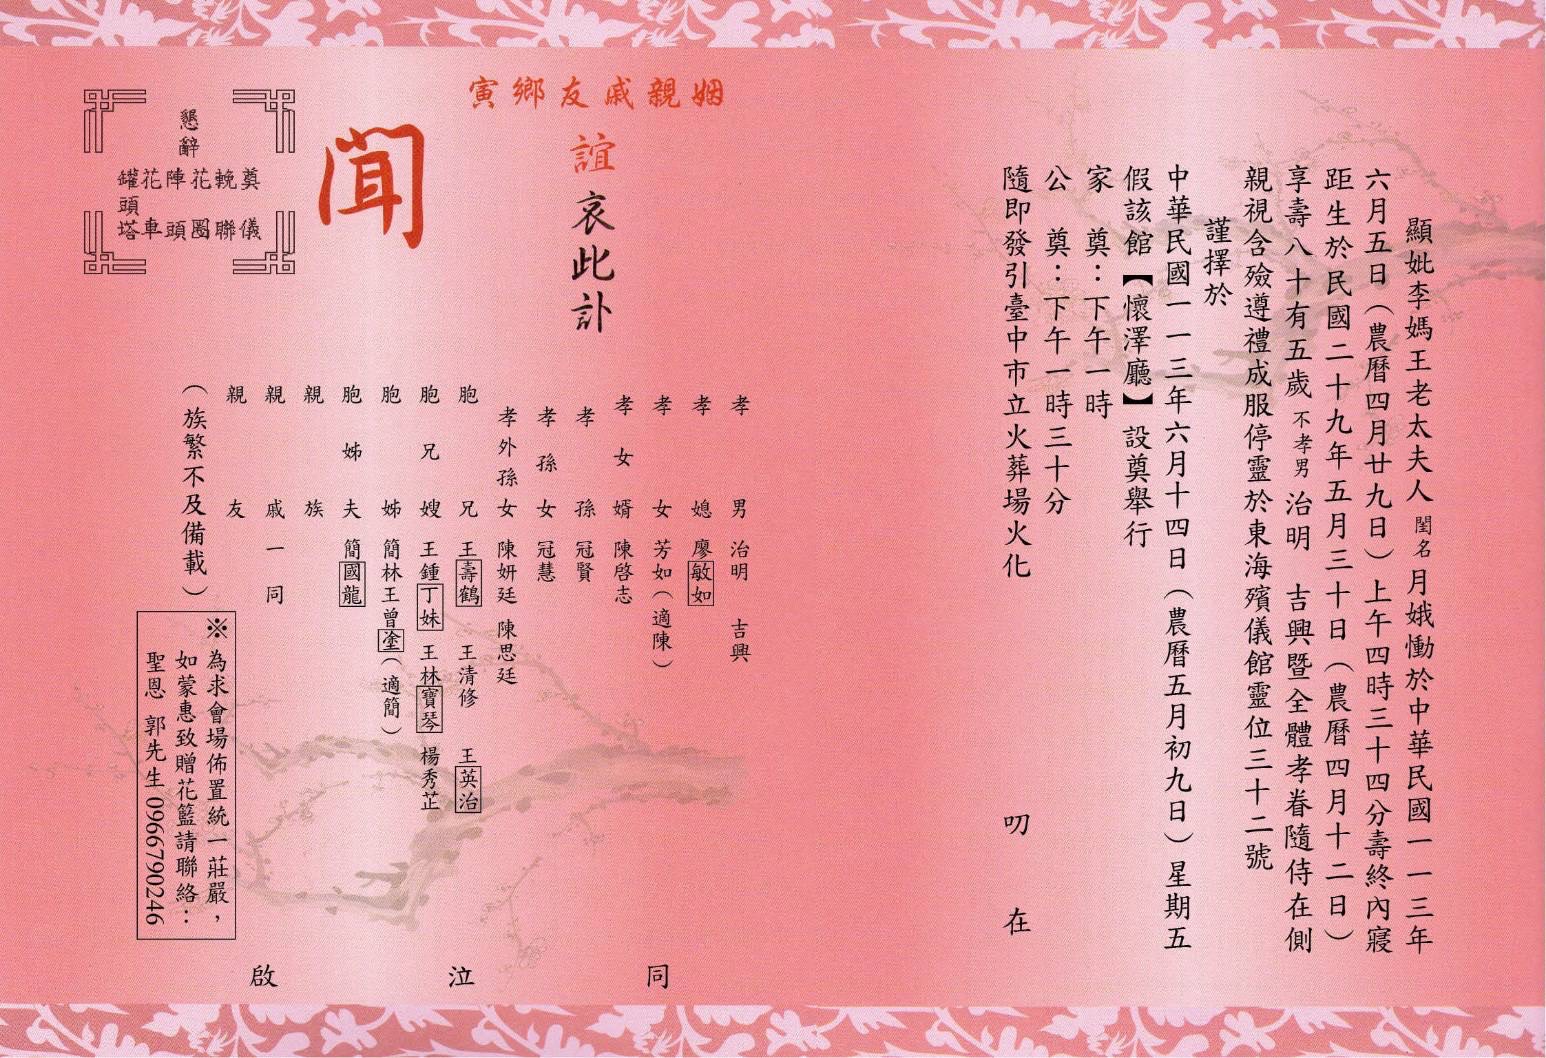 顯妣李媽王老太夫人閨名月娥慟於中華民國一一三年
六月五日（農曆四月廿九日）上午四時三十四分壽終內寢
距生於民國二十九年五月三十日（農曆四月十二日）
享壽八十有五歲不孝男治明　吉興暨全體孝眷隨侍在側
親視含殮遵禮成服停靈於東海殯儀館靈位三十二號
謹擇於
中華民國一一三年六月十四日（農曆五月初九日）星期五
假該館【懷澤廳】設奠舉行
家　奠：下午一時
公　奠：下午一時三十分
隨即發引臺中市立火葬場火化
叨　在
寅鄉友戚親姻
誼哀此訃
聞
懇辭
奠儀
輓聯
花圈
陣頭
花車
罐頭塔
孝男　治明　吉興
孝媳　廖敏如
孝女　芳如（適陳）
孝女婿　陳啓志
孝孫　冠賢
孝孫女　冠慧
孝外孫女　陳妍廷　陳思廷
胞兄　王壽鶴　王清修　王英治
胞兄嫂　王鍾丁妹　王林寶琴　楊秀芷
胞姊　簡林王曾塗（適簡）
胞姊夫　簡國龍
親族
親戚一同
親友
（族繁不及備載）
同泣啟
※為求會場佈置統一莊嚴，
如蒙惠致贈花籃請聯絡：
聖恩 郭先生 0966790246